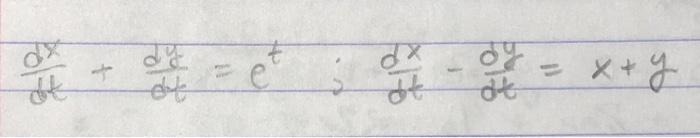 dx/dt + dy/dt = e^t ; dx/dt - dy/dt = x + y